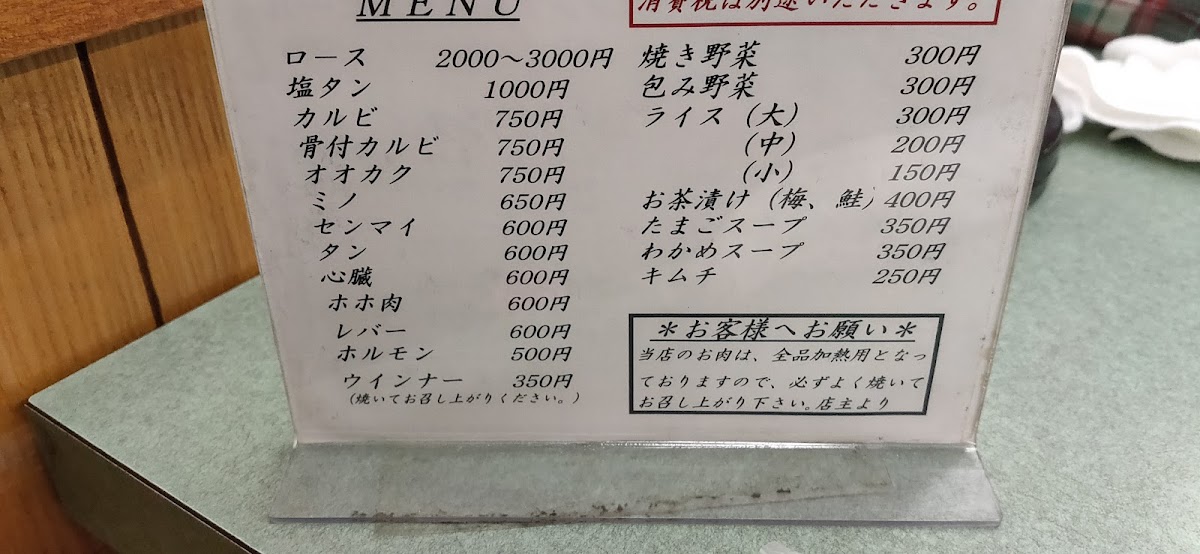 MENU
消費税は別途いただきます。
ロース 2000～3000円
塩タン 1000円
カルビ 750円
骨付カルビ 750円
オオカク 750円
ミノ 650円
センマイ 600円
タン 600円
心臓 600円
ホホ肉 600円
レバー 600円
ホルモン 500円
ウインナー 350円
(焼いてお召し上がりください。)
焼き野菜 300円
包み野菜 300円
ライス (大) 300円
(中) 200円
(小) 150円
お茶漬け (梅、鮭) 400円
たまごスープ 350円
わかめスープ 350円
キムチ 250円
＊お客様へお願い＊
当店のお肉は、全品加熱用となっ
ておりますので、必ずよく焼いて
お召し上がり下さい。店主より